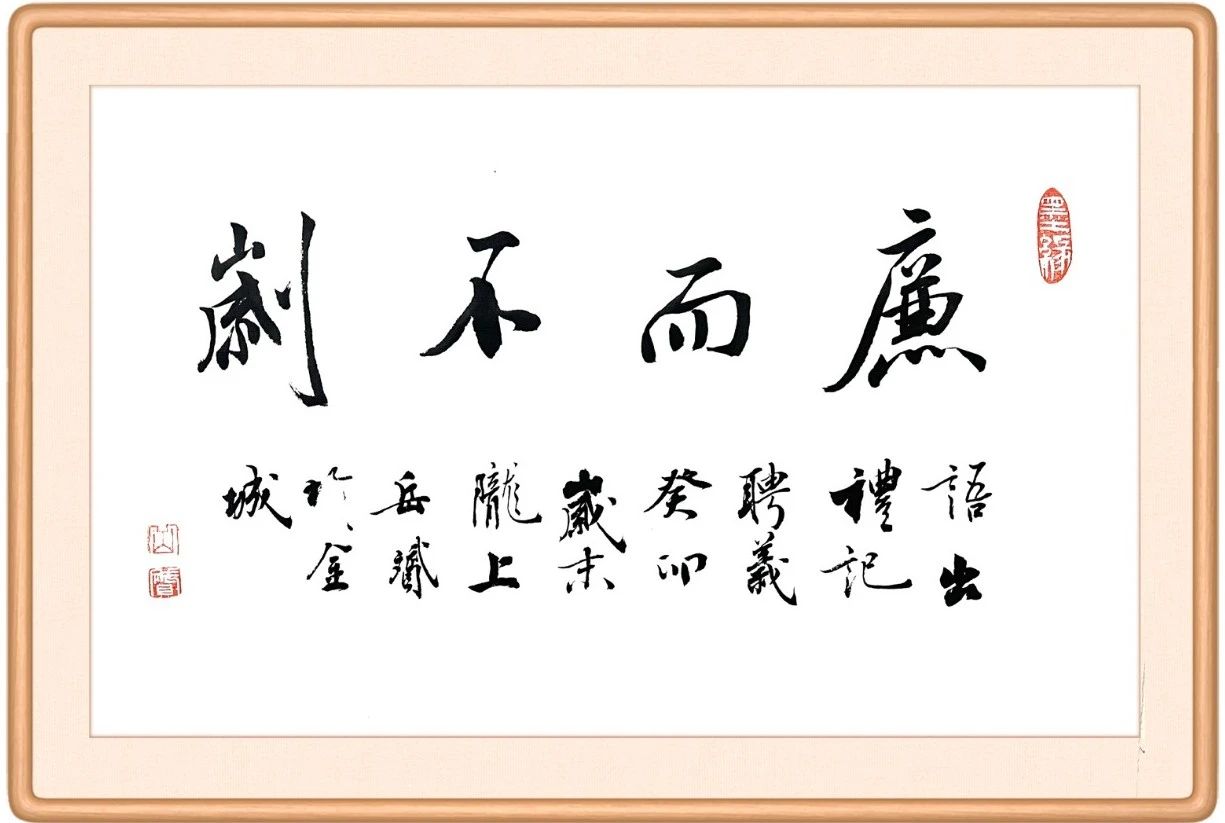 廉而不劌
語出
禮記
聘義
癸卯
歲末
隴上
岳
於金
城
墨緣